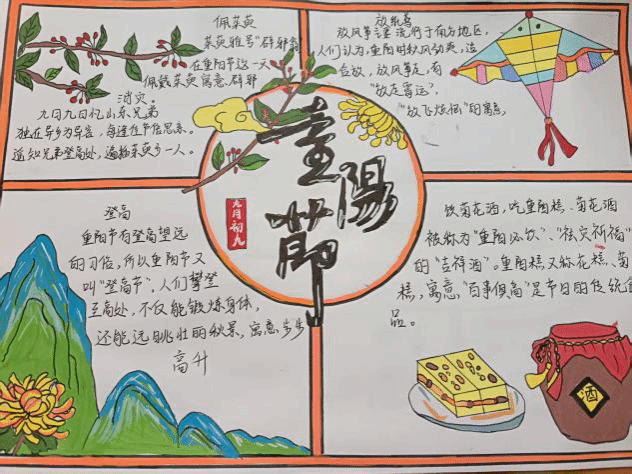 佩茱萸
茱萸雅号“辟邪翁”
在重阳节这一天
佩戴茱萸寓意辟邪
消灾。
九月九日忆山东兄弟
独在异乡为异客，每逢佳节倍思亲。
遥知兄弟登高处，遍插茱萸少一人。
放纸鸢
放风筝主要流行于南方地区，
人们认为，重阳时秋风劲爽，适
合放，放风筝走，有
“放走霉运”，
“放飞烦恼”的寓意，
重陽節
九月初九
登高
重阳节有登高望远
的习俗，所以重阳节又
叫“登高节”，人们攀登
至高处，不仅能锻炼身体，
还能远眺壮丽秋景，寓意步步
高升
饮菊花酒，吃重阳糕、菊花酒
被称为“重阳必饮”、“祛灾祈福”
的“吉祥酒”。重阳糕又称花糕、菊
糕，寓意“百事俱高”是节日的传统食
品。
酒